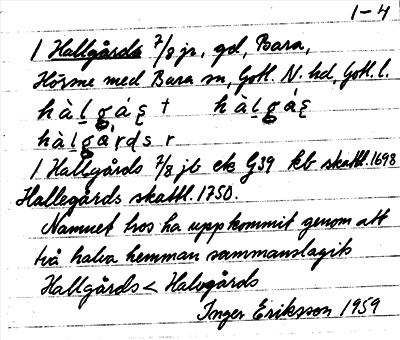 1-4
1 Hallgårds 7/8 jr, gd, Bara,
Hörsne med Bara sn, Gotl. N. hd, Gotl. l.
hàlgáȩ † hàlgáȩ
hàlgárds r
1 Hallgårds 7/8 jb ek G39 kb skattl. 1698
Hallegårds skattl. 1750.
Namnet tros ha uppkommit genom att
två halva hemman sammanslagits
Hallgårds < Halvgårds
Inger Eriksson 1959